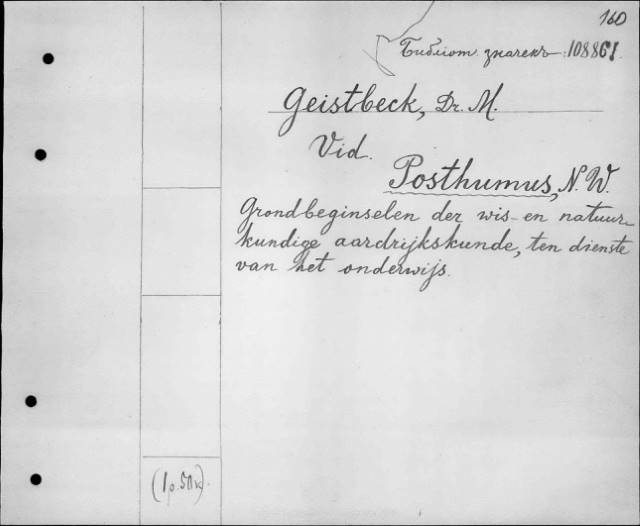 160
Библіот. значекъ: 108861.
Geistbeck, Dr. M.
Vid.
Posthumus, N. W.
Grondbeginselen der wis- en natuur-
kundige aardrijkskunde, ten dienste
van het onderwijs.
(1 р. 50 к.)